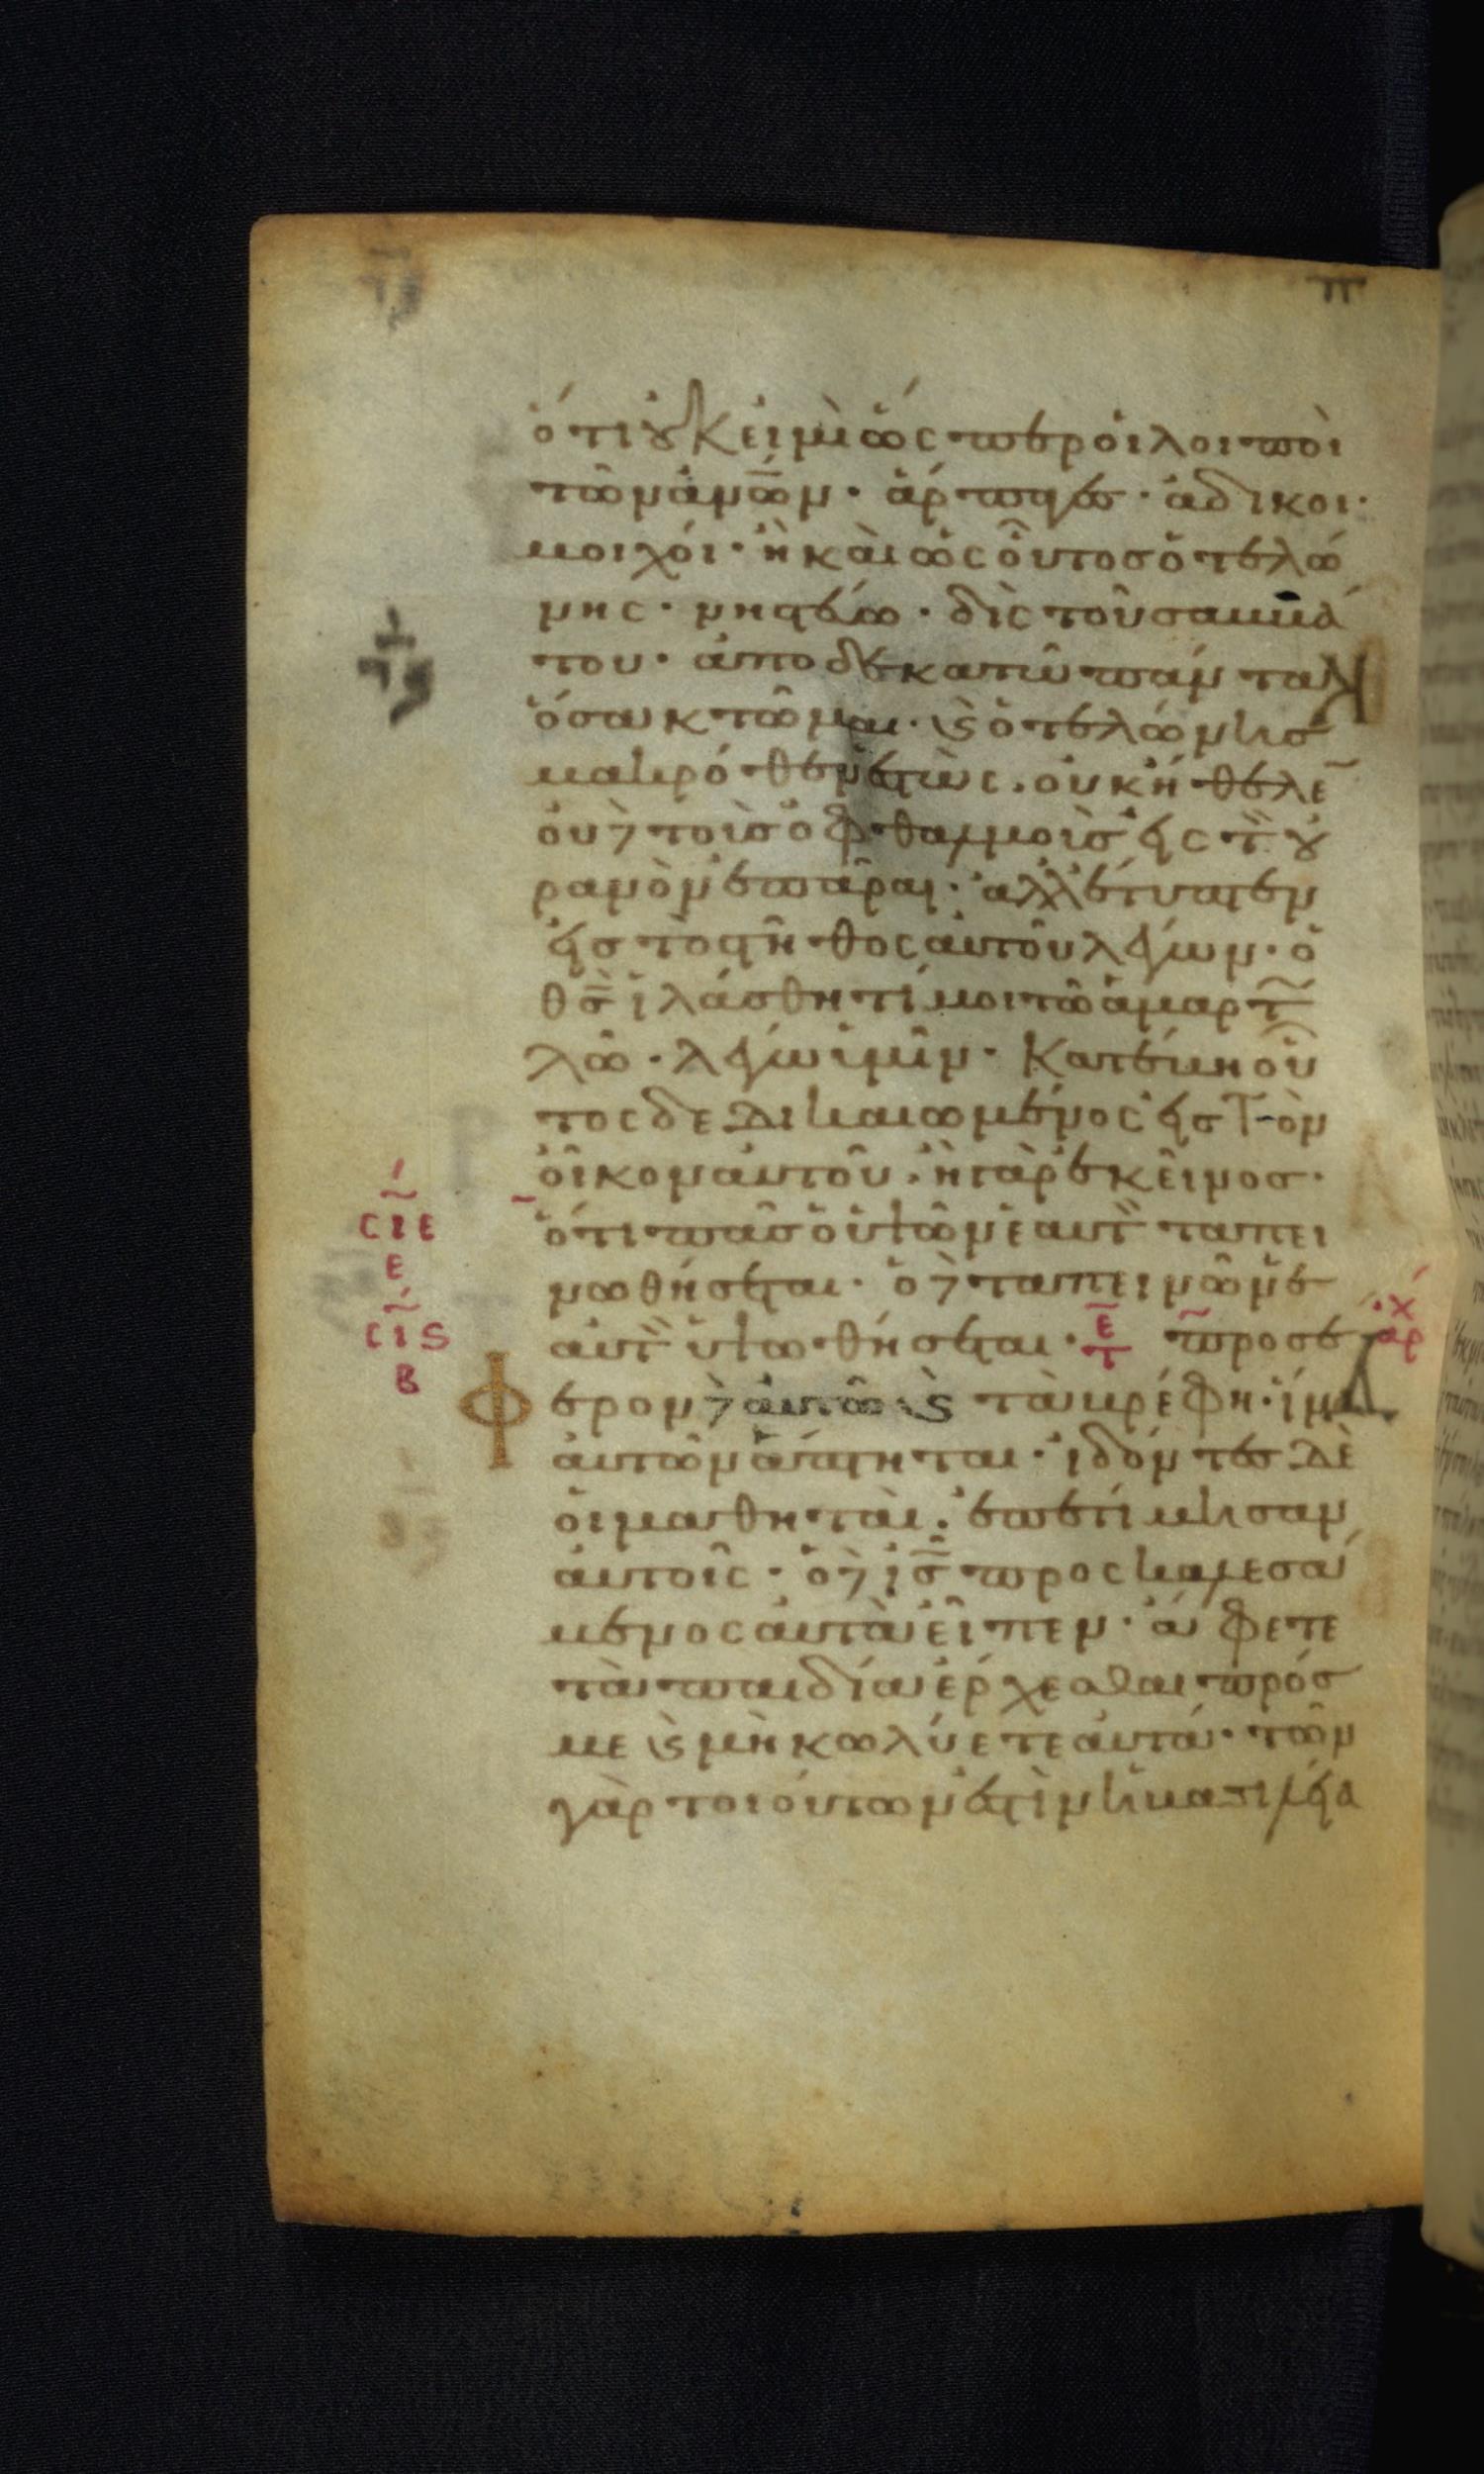 ὅτι οὐκ εἰμὶ ὡς περ οἱ λοιποὶ
τῶν ἀν̅ω̅ν· ἅρπαγες· ἄδικοι·
μοιχοί· ἢ καὶ ὡς οὗτος ὁ τελώ
νης· νηστεύω· δὶς τοῦ σαββά
του· ἀποδεκατῶ πάντα
ὅσα κτῶμαι· ϗ ὁ τελώνης
μακρόθεν ἑστὼς· οὐκ ἤθελε
οὐδὲ τοὺς ὀφθαλμοὺς εἰς τὸν οὐ
ρανὸν ἐπᾶραι· ἀλλ ἔτυπτεν
εἰς τὸ στῆθος αὐτοῦ λέγων· ὁ
θ̅ς̅ ἱλάσθητί μοι τῷ ἁμαρτω
λῷ· λέγω ὑμῖν· Κατέβη οὗ
τος δεδικαιωμένος εἰς τὸν
οἶκον αὐτοῦ· ἢ γὰρ ἐκεῖνος·
ὅτι πᾶς ὁ ὑψῶν ἑαυτὸν ταπει
νωθήσεται· ὁ δὲ ταπεινῶν ἑ
αυτὸν ὑψωθήσεται· ΤΕ προσέ
Φερον δὲ αὐτῷ ϗ τὰ βρέφη· ἵνα
αὐτῶν ἅπτηται· ἰδόντες δὲ
οἱ μαθηταὶ· ἐπετίμησαν
αὐτοῖς· ὁ δὲ ι̅ς̅ προσκαλεσά
μενος αὐτὰ εἶπεν· ἄφετε
τὰ παιδία ἔρχεσθαι πρός
με ϗ μὴ κωλύετε αὐτά· τῶν
γὰρ τοιούτων ἐστὶν ἡ βασιλεία
СΙΕ
Ε
СΙS
Β